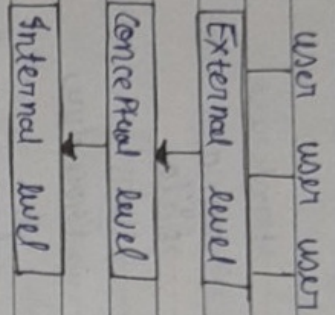 user user user
External level
Conceptual level
Internal level